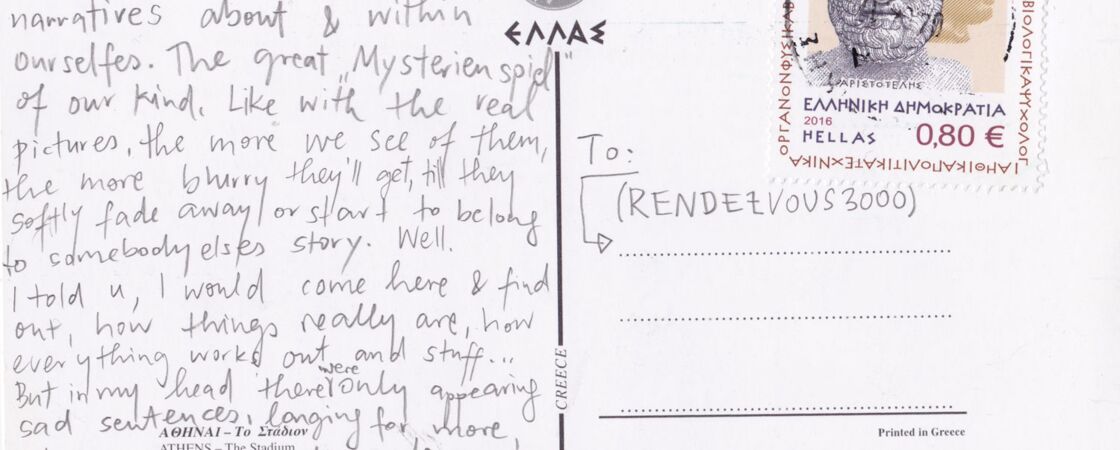 narratives about & within
ourselfes. The great „Mysterienspiel"
of our kind. Like with the real
pictures, the more we see of them,
the more blurry they'll get, till they
softly fade away or start to belong
to somebody elses story. Well.
I told u, I would come here & find
out, how things really are, how
everything works out and stuff...
But in my head there were only appearing
sad sentences, langing for, more,
ΑΘΗΝΑΙ – Το Στάδιον
ATHENS – The Stadium
ΕΛΛΑΣ
CREECE
To:
(RENDEZVOUS3000)
Printed in Greece
ΑΡΙΣΤΟΤΕΛΗΣ
ΕΛΛΗΝΙΚΗ ΔΗΜΟΚΡΑΤΙΑ
2016
HELLAS 0,80 €
ΟΡΓΑΝΟΝΦΥΣΙΚΑΒ
ΒΙΟΛΟΓΙΚΑΨΥΧΟΛΟΓ
ΙΑΗΘΙΚΑΠΟΛΙΤΙΚΑΤΕΧΝΙΚΑ